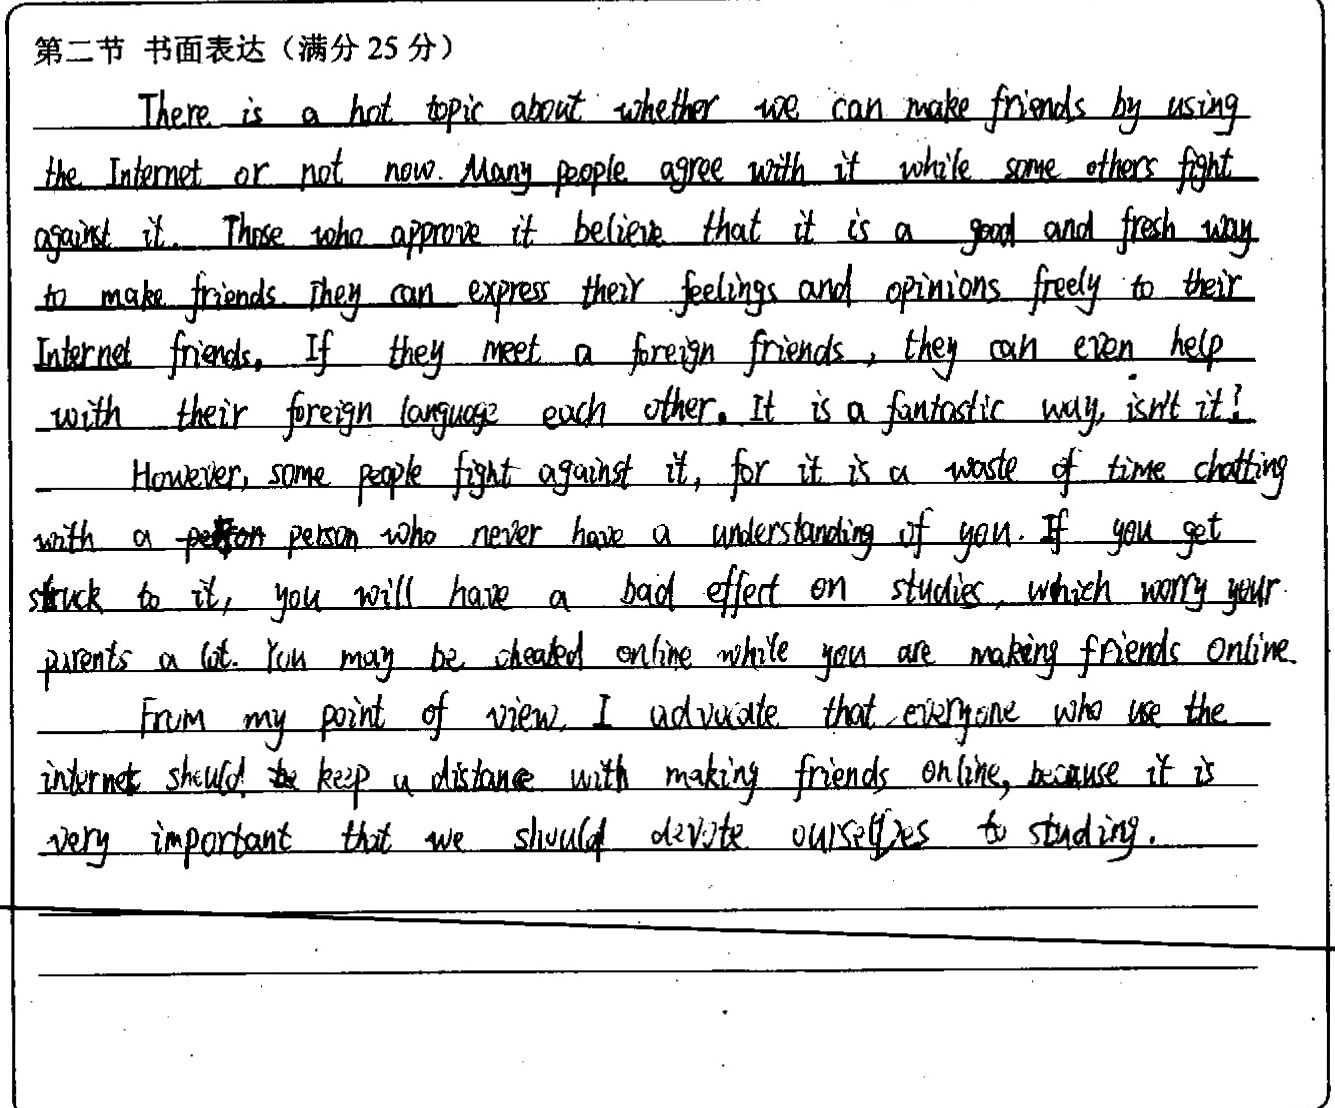 第二节 书面表达（满分 25 分）
There is a hot topic about whether we can make friends by using
the Internet or not now. Many people agree with it while some others fight
against it. Those who approve it believe that it is a good and fresh way
to make friends. They can express their feelings and opinions freely to their
Internet friends. If they meet a foreign friends, they can even help
with their foreign language each other. It is a fantastic way, isn't it?
However, some people fight against it, for it is a waste of time chatting
with a person who never have a understanding of you. If you get
struck to it, you will have a bad effect on studies, which worry your
parents a lot. You may be cheated online while you are making friends online.
From my point of view, I advocate that everyone who use the
internet should keep a distance with making friends online, because it is
very important that we should devote ourselves to studing.